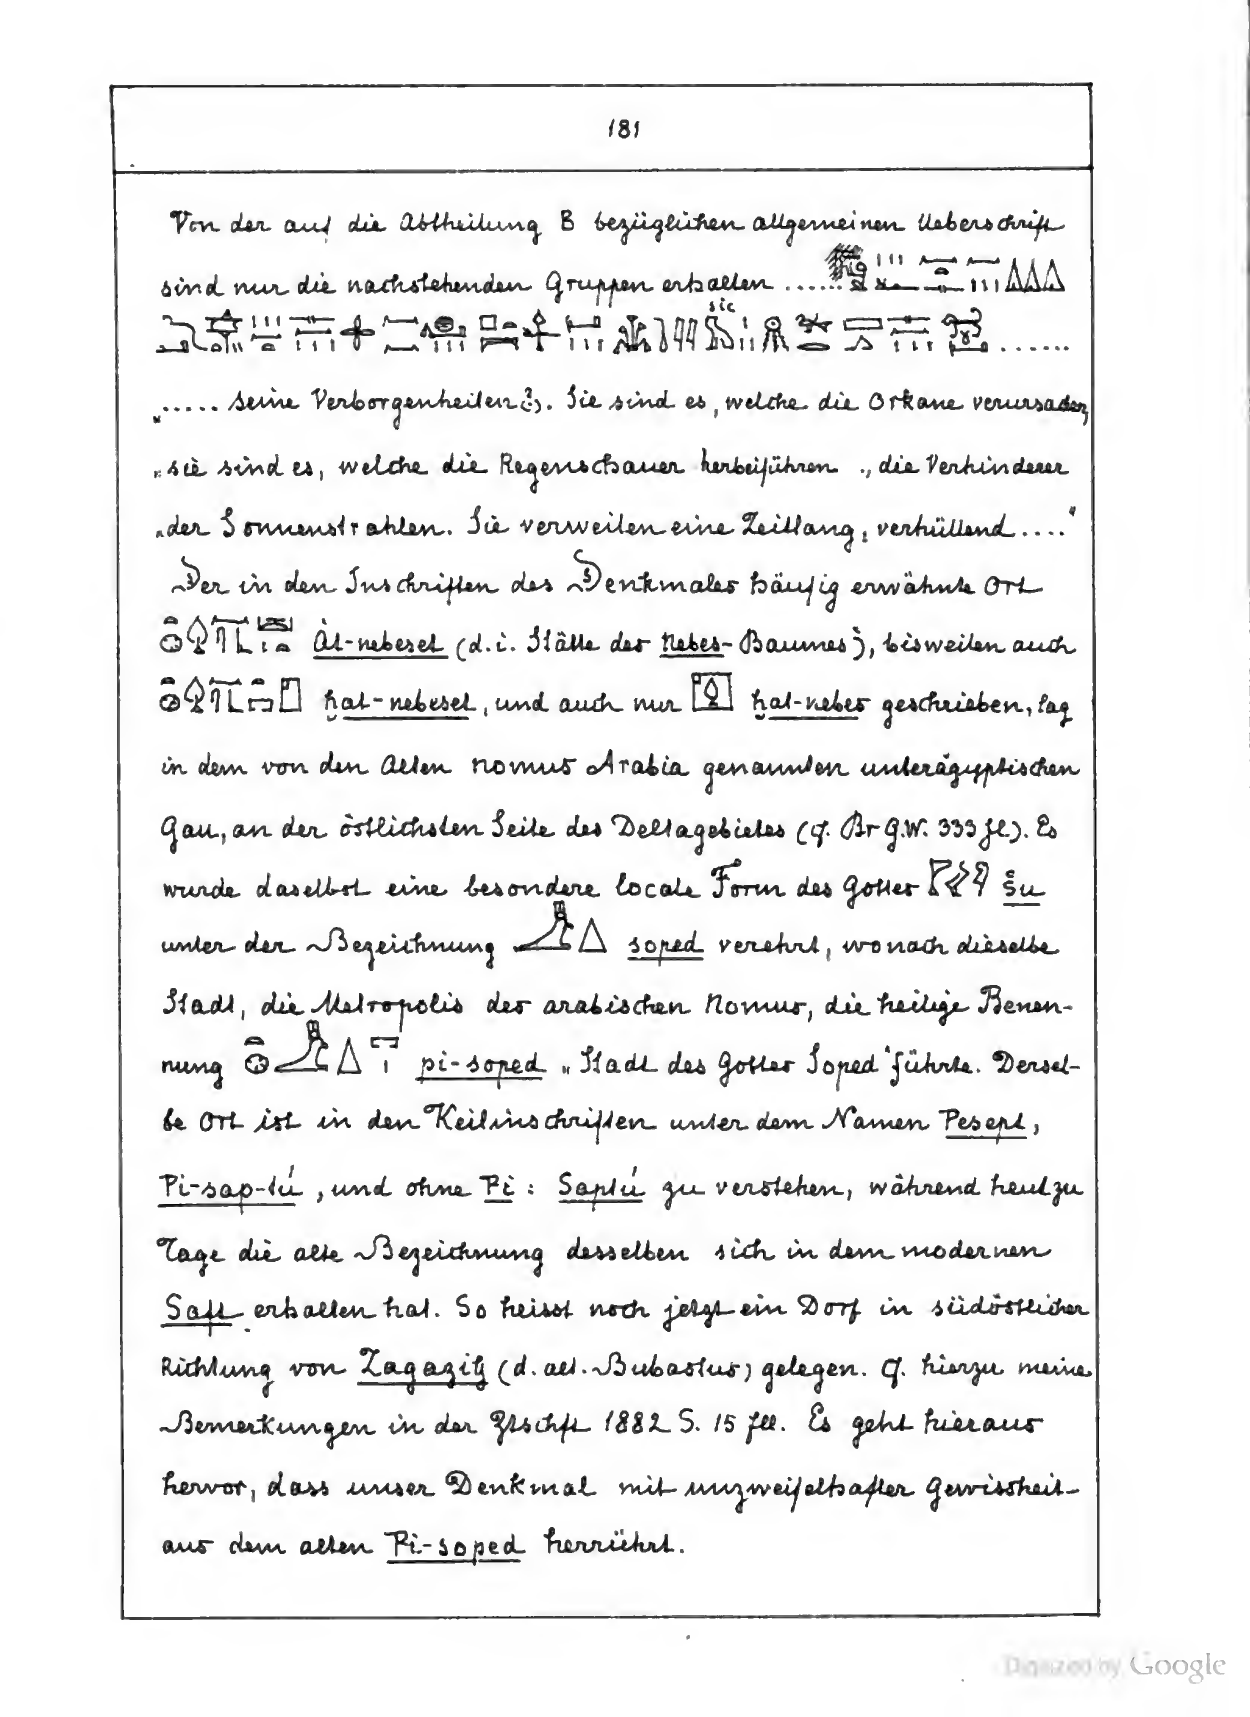 181
Von der auf die Abtheilung B bezüglichen allgemeinen Ueberschrift
sind nur die nachstehenden Gruppen erhalten ......
sic
......
"..... seine Verborgenheiten(?). Sie sind es, welche die Orkane verursachen,
"sie sind es, welche die Regenschauer herbeiführen, die Verhinderer
"der Sonnenstrahlen. Sie verweilen eine Zeitlang, verhüllend ...."
Der in den Inschriften des Denkmales häufig erwähnte Ort
Àt-nebeset (d. i. Stätte des Nebes-Baumes), bisweilen auch
ḥat-nebeset, und auch nur ḥat-nebes geschrieben, lag
in dem von den Alten nomus Arabia genannten unterägyptischen
Gau, an der östlichsten Seite des Deltagebietes (cf. Br G.W. 333 fl.). Es
wurde daselbst eine besondere locale Form des Gottes šu
unter der Bezeichnung soped verehrt, wonach dieselbe
Stadt, die Metropolis des arabischen Nomus, die heilige Benen-
nung pi-soped "Stadt des Gottes Soped" führte. Dersel-
be Ort ist in den Keilinschriften unter dem Namen Pesept,
Pi-sap-tú, und ohne Pi: Saptú zu verstehen, während heut zu
Tage die alte Bezeichnung desselben sich in dem modernen
Saft erhalten hat. So heisst noch jetzt ein Dorf in südöstlicher
Richtung von Zagazig (d. alt. Bubastus) gelegen. Cf. hierzu meine
Bemerkungen in der Ztschft 1882 S. 15 fll. Es geht hieraus
hervor, dass unser Denkmal mit unzweifelhafter Gewissheit
aus dem alten Pi-soped herrührt.
Digitized by Google